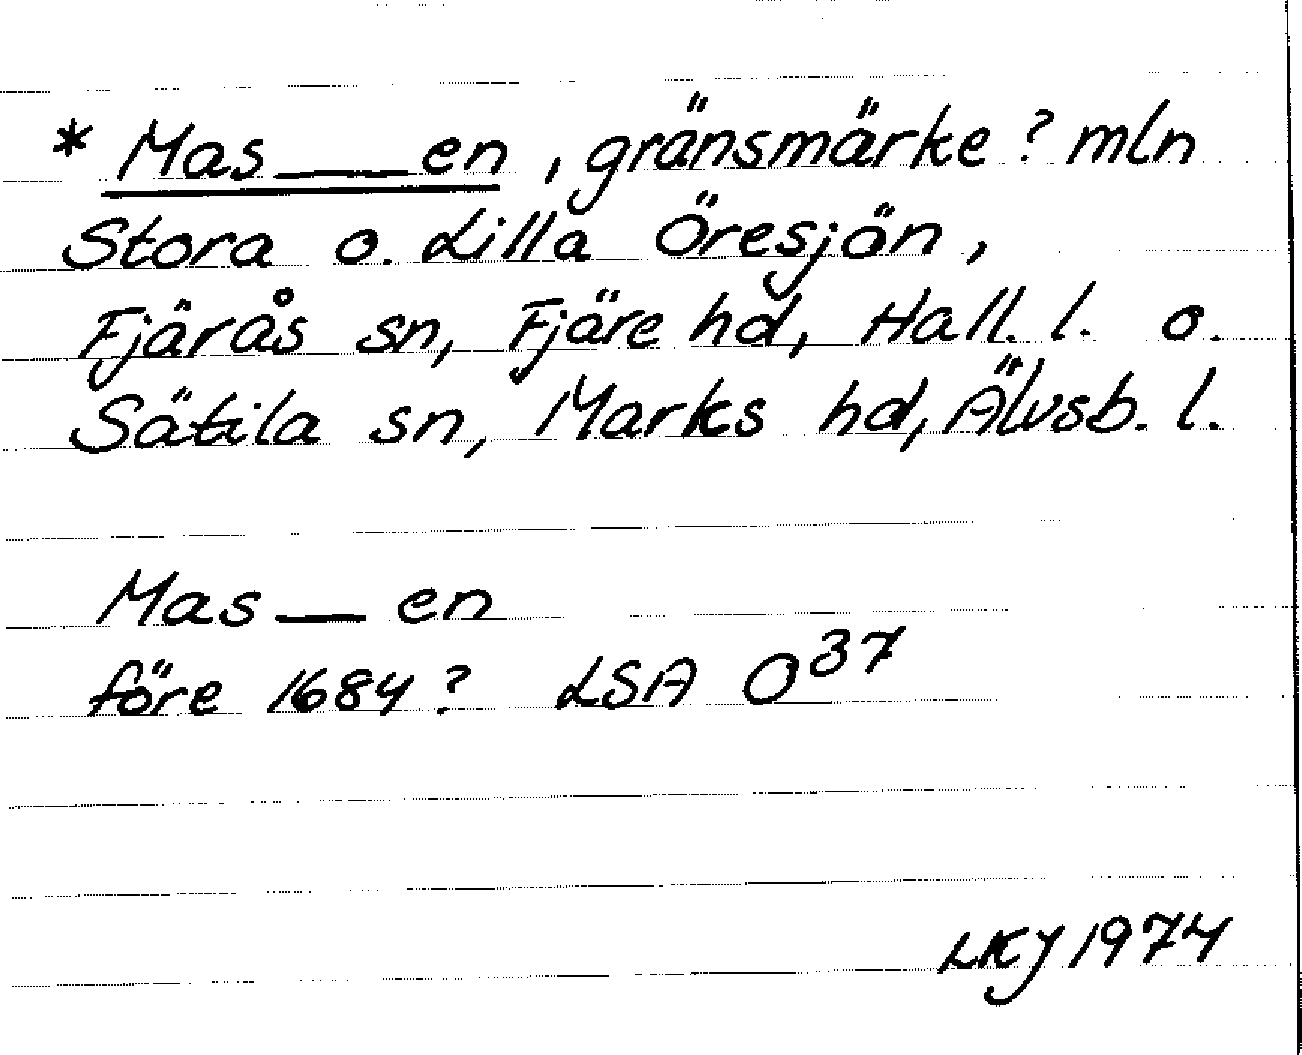 * Mas___en, gränsmärke? mln
Stora o. Lilla Öresjön,
Fjärås sn, Fjäre hd, Hall. l. o.
Sätila sn, Marks hd, Älvsb. l.
Mas__en
före 1684? LSA O³⁷
LKJ 1974